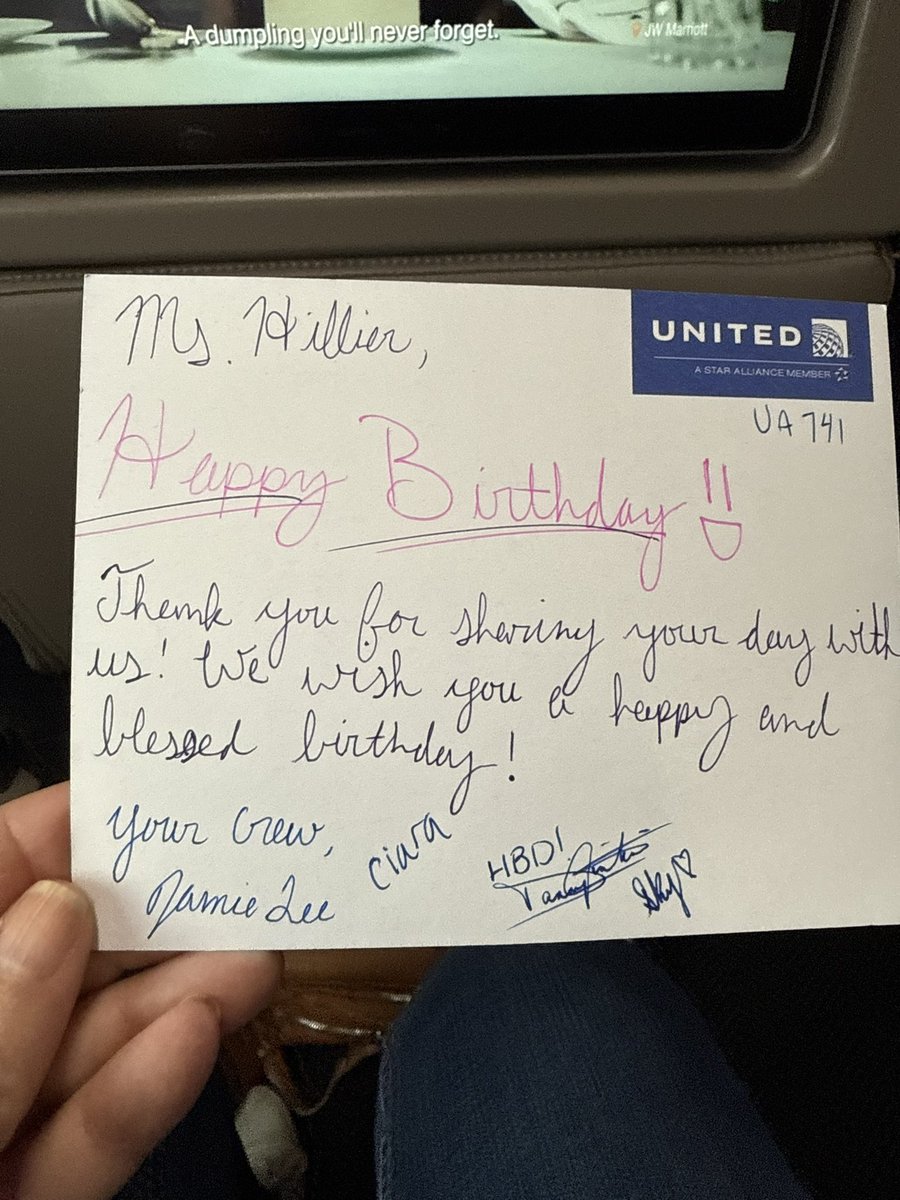 A dumpling you'll never forget.
JW Marriott
Ms. Hillier,
UNITED
A STAR ALLIANCE MEMBER
UA 741
Happy Birthday!!
Thank you for sharing your day with
us! We wish you a happy and
blessed birthday!
Your Crew,
Jamie Lee
Ciara
HBD!
Sky♡